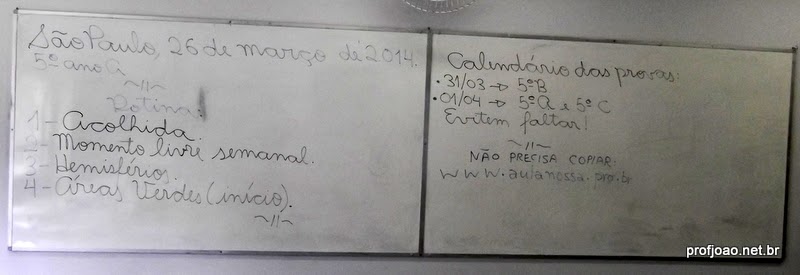 São Paulo, 26 de março de 2014.
5º ano A
~//~
Rotina:
1 - Acolhida.
2 - Momento livre semanal.
3 - Hemisférios.
4 - Áreas Verdes (início).
~//~
Calendário das provas:
• 31/03 → 5ºB
• 01/04 → 5ºA e 5ºC
Evitem faltar!
~//~
NÃO PRECISA COPIAR:
www.aulanossa.pro.br
profjoao.net.br